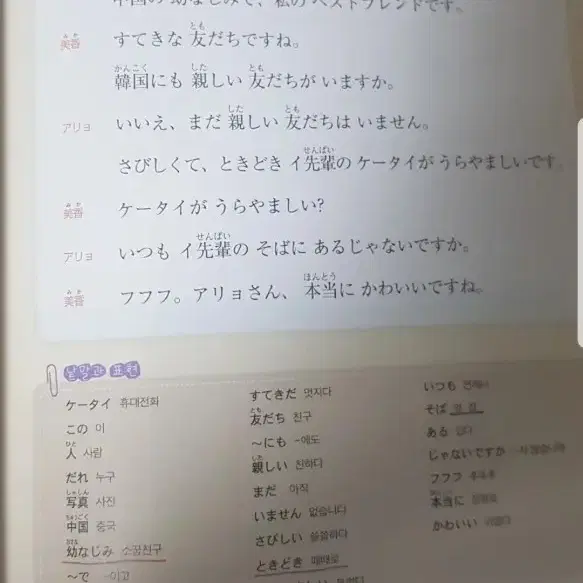 中国の 幼なじみで、私の ベストフレンドです。
美香 すてきな 友だちですね。
韓国にも 親しい 友だちが いますか。
アリョ いいえ、まだ 親しい 友だちは いません。
さびしくて、ときどき イ先輩の ケータイが うらやましいです。
美香 ケータイが うらやましい?
アリョ いつも イ先輩の そばに あるじゃないですか。
美香 フフフ。アリョさん、本当に かわいいですね。
낱말과 표현
ケータイ 휴대전화
この 이
人 사람
だれ 누구
写真 사진
中国 중국
幼なじみ 소꿉친구
～で -이고
すてきだ 멋지다
友だち 친구
～にも -에도
親しい 친하다
まだ 아직
いません 없습니다
さびしい 쓸쓸하다
ときどき 때때로
いつも 언제나
そば
ある 있다
じゃないですか
フフフ 후후후
本当に
かわいい 귀엽다